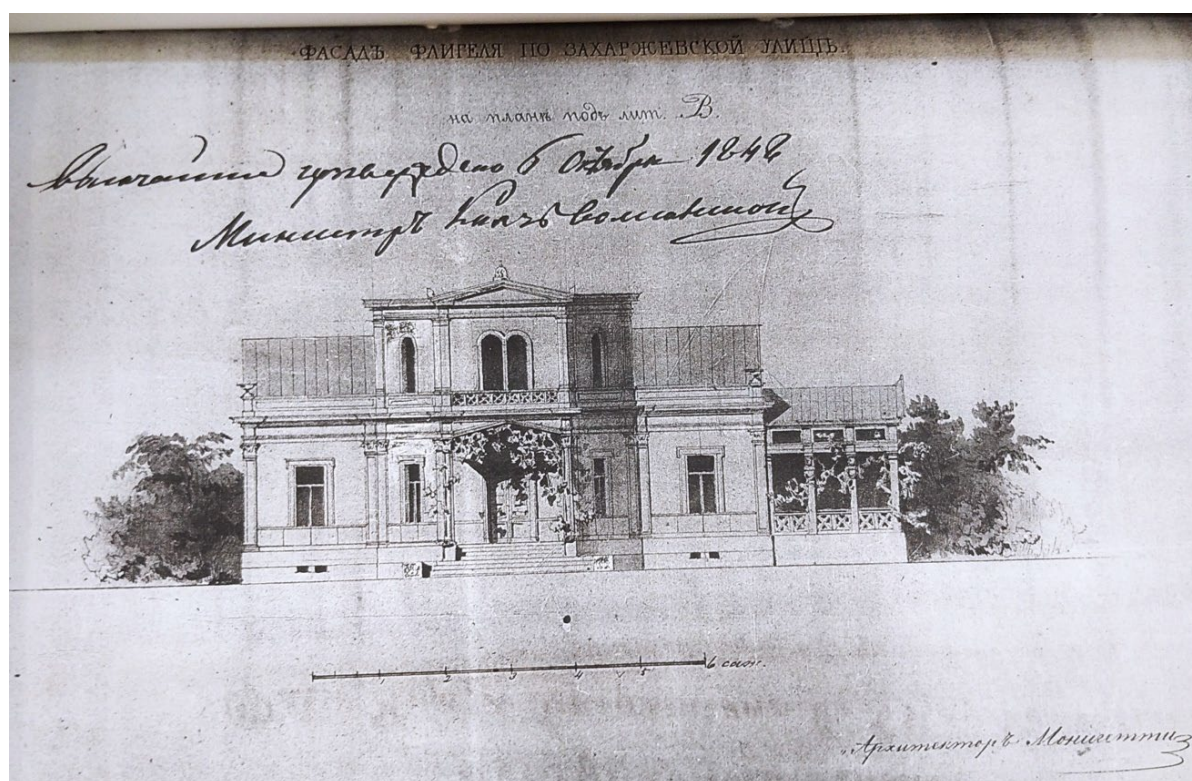 ФАСАДЪ ФЛИГЕЛЯ ПО ЗАХАРЖЕВСКОЙ УЛИЦѢ.
на планѣ подъ лит. В.
Высочайше утверждено 6 Октября 1848
Министръ Князь Волконской
1 2 3 4 5 6 саж.
Архитекторъ Монигетти